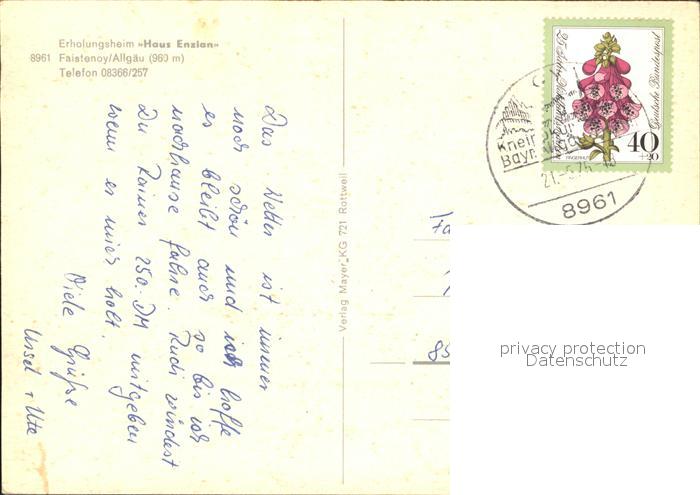 Erholungsheim »Haus Enzian«
8961 Faistenoy/Allgäu (960 m)
Telefon 08366/257
Das Wetter ist immer
noch schön und ich hoffe
es bleibt auch so bis ich
nachhause fahre. Kuch windest
Du Rainer 250.-DM mitgeben
wenn er mich holt.
Viele Grüße
Ursel + Ute
Verlag Mayer KG 721 Rottweil
Deutsche Bundespost
FINGERHUT
40
+20
Kneip
Bayr.
8961
85
privacy protection
Datenschutz